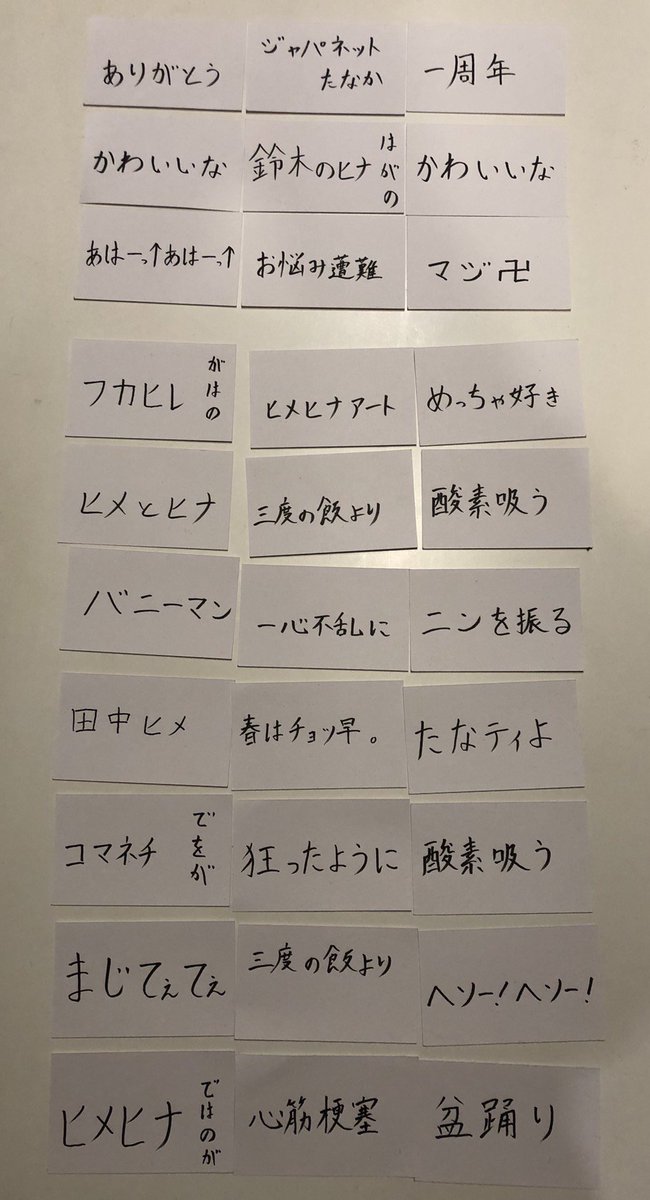 ありがとう
ジャパネット
たなか
一周年
かわいいな
鈴木のヒナ
はがの
かわいいな
あはーっ↑あはーっ↑
お悩み遭難
マジ卍
フカヒレ
がはの
ヒメヒナアート
めっちゃ好き
ヒメとヒナ
三度の飯より
酸素吸う
バニーマン
一心不乱に
ニンを振る
田中ヒメ
春はチョツ早。
たなティよ
コマネチ
でをが
狂ったように
酸素吸う
まじてぇてぇ
三度の飯より
ヘソー!ヘソー!
ヒメヒナ
ではのが
心筋梗塞
盆踊り